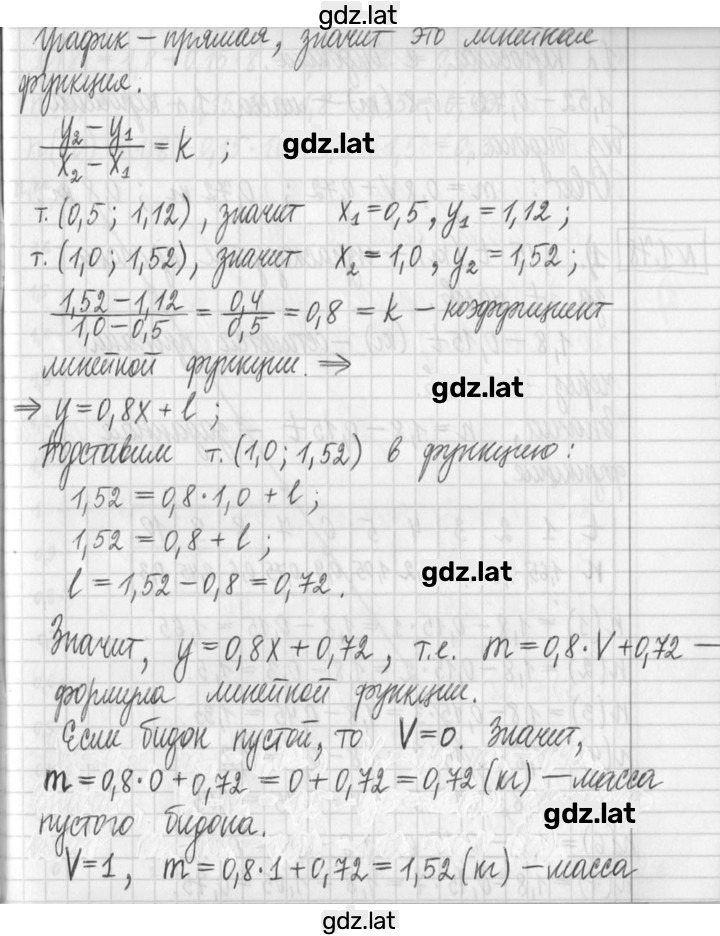 gdz.lat
График – прямая, значит это линейная
функция.
(y₂ – y₁)/(x₂ – x₁) = k ; gdz.lat
т. (0,5 ; 1,12), значит x₁ = 0,5, y₁ = 1,12 ;
т. (1,0 ; 1,52), значит x₂ = 1,0, y₂ = 1,52 ;
(1,52 – 1,12)/(1,0 – 0,5) = 0,4/0,5 = 0,8 = k – коэффициент
линейной функции. ⇒
gdz.lat
⇒ y = 0,8x + l ;
Подставим т. (1,0 ; 1,52) в функцию :
1,52 = 0,8 · 1,0 + l ;
1,52 = 0,8 + l ;
gdz.lat
l = 1,52 – 0,8 = 0,72 .
Значит, y = 0,8x + 0,72 , т.е. m = 0,8 · V + 0,72 –
формула линейной функции.
Если бидон пустой, то V = 0. Значит,
m = 0,8 · 0 + 0,72 = 0 + 0,72 = 0,72 (кг) – масса
пустого бидона.
gdz.lat
V = 1 , m = 0,8 · 1 + 0,72 = 1,52 (кг) – масса
gdz.lat